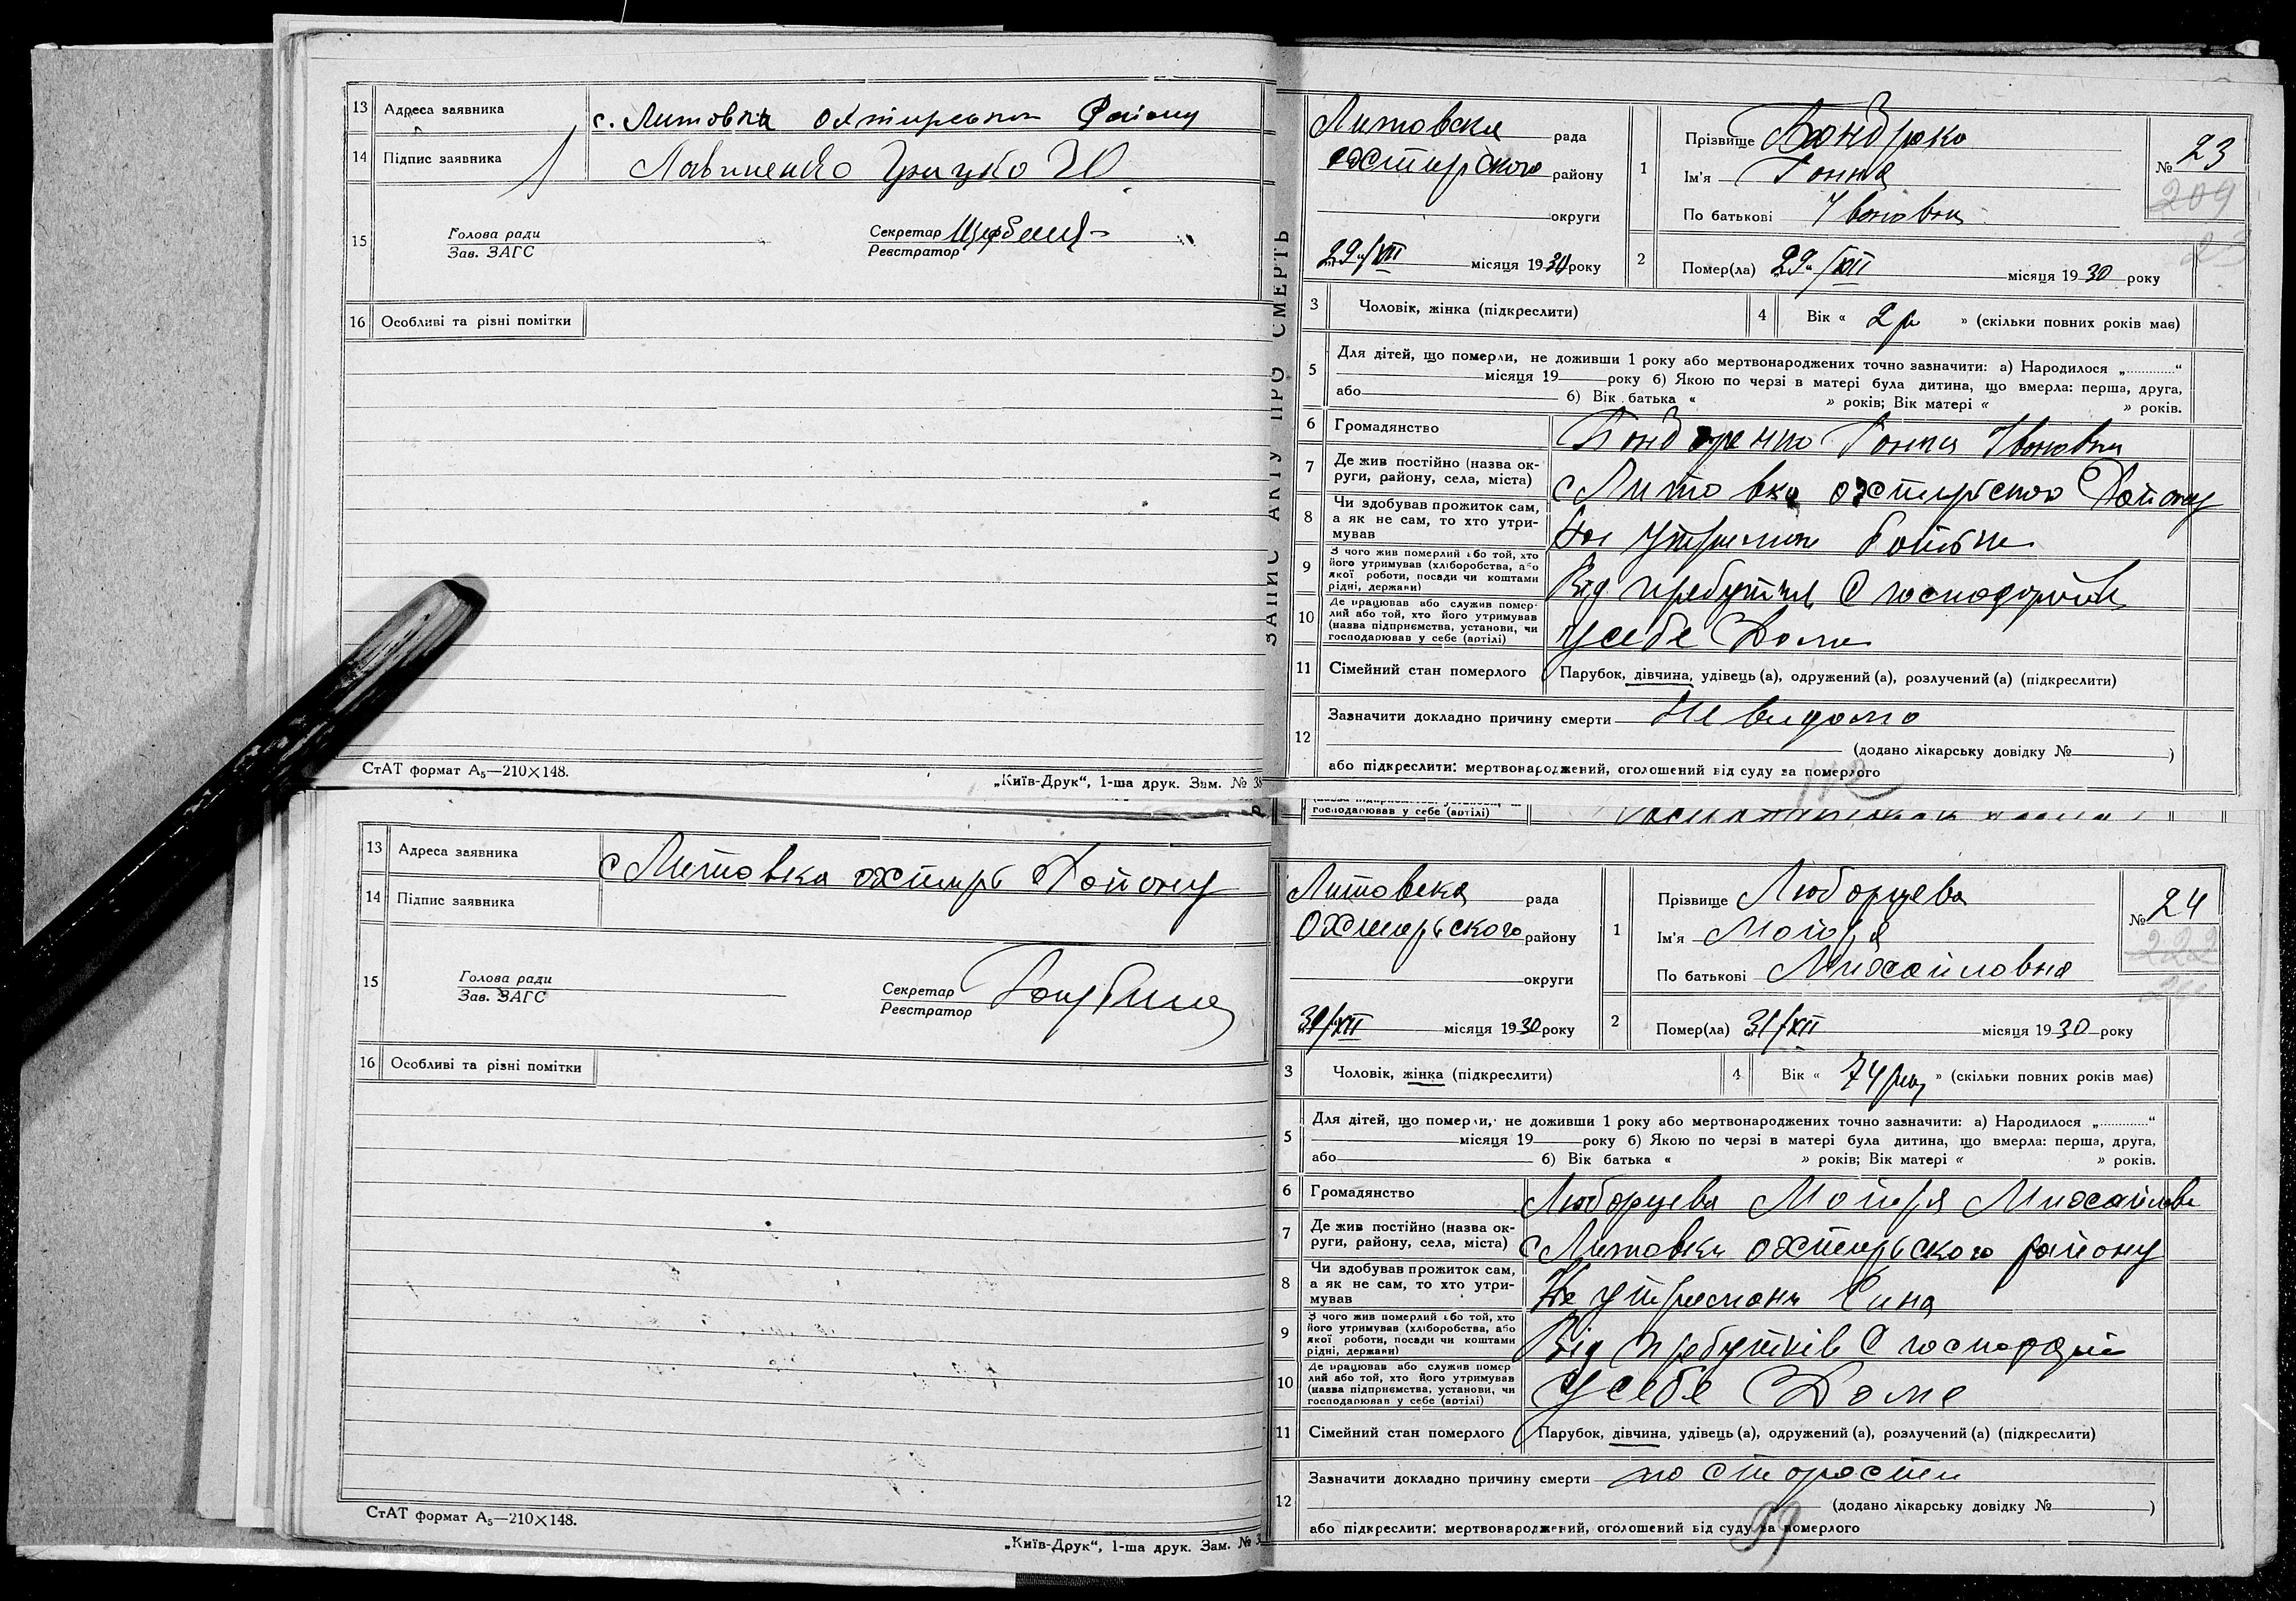 13 Адреса заявника с. Литовка Охтирського Району
14 Підпис заявника Лавриненко Грицко Ю
15 Голова ради
Зав. ЗАГС
Секретар Щербина
Реєстратор
16 Особливі та різні помітки
СтАТ формат А₅—210×148.
„Київ-Друк“, 1-ша друк. Зам. № 38
ЗАПИС АКТУ ПРО СМЕРТЬ
Литовска рада
охтирского району
округи
29/XII місяця 1930 року
1 Прізвище
Ім'я Ганна
По батькові Івановна
№ 23
209
23
2 Помер(ла) 29/XII місяця 1930 року
3 Чоловік, жінка (підкреслити)
4 Вік « 2 р » (скільки повних років має)
5 Для дітей, що померли, не доживши 1 року або мертвонароджених точно зазначити: а) Народилося „............“
місяця 19 року б) Якою по черзі в матері була дитина, що вмерла: перша, друга,
або б) Вік батька « » років; Вік матері « » років.
6 Громадянство Бондаренко Ганна Івановна
7 Де жив постійно (назва ок-
руги, району, села, міста) с Литовка охтирского Району
8 Чи здобував прожиток сам,
а як не сам, то хто утри-
мував На утримані батька
9 З чого жив померлий або той, хто
його утримував (хліборобства, або
якої роботи, посади чи коштами
рідні, держави) Від пребутків С господорства
10 Де працював або служив помер-
лий або той, хто його утримував
(назва підприємства, установи, чи
господарював у себе (артілі) У себе Дома
11 Сімейний стан померлого Парубок, дівчина, удівець (а), одружений (а), розлучений (а) (підкреслити)
12 Зазначити докладно причину смерти Не видомо
(додано лікарську довідку № )
або підкреслити: мертвонароджений, оголошений від суду за померлого
господарював у себе (артілі)
13 Адреса заявника с Литовка охтирь Району
14 Підпис заявника
15 Голова ради
Зав. ЗАГС
Секретар
Реєстратор
16 Особливі та різні помітки
СтАТ формат А₅—210×148.
„Київ-Друк“, 1-ша друк. Зам. № 3
Литовска рада
Охтирьского району
округи
31/XII місяця 1930 року
1 Прізвище Люборцева
Ім'я Марфа
По батькові Михайловна
№ 24
222
24
2 Помер(ла) 31/XII місяця 1930 року
3 Чоловік, жінка (підкреслити)
4 Вік « 74 рец » (скільки повних років має)
5 Для дітей, що померли, не доживши 1 року або мертвонароджених точно зазначити: а) Народилося „............“
місяця 19 року б) Якою по черзі в матері була дитина, що вмерла: перша, друга,
або б) Вік батька « » років; Вік матері « » років.
6 Громадянство Люборцева Марфа Михайлов
7 Де жив постійно (назва ок-
руги, району, села, міста) с Литовки охтирьского району
8 Чи здобував прожиток сам,
а як не сам, то хто утри-
мував На утримані Сина
9 З чого жив померлий або той, хто
його утримував (хліборобства, або
якої роботи, посади чи коштами
рідні, держави) Від пребутків С
10 Де працював або служив помер
лий або той, хто його утримував
(назва підприємства, установи, чи
господарював у себе (артілі) У себе Дома
11 Сімейний стан померлого Парубок, дівчина, удівець (а), одружений (а), розлучений (а) (підкреслити)
12 Зазначити докладно причину смерти по старости
(додано лікарську довідку № )
або підкреслити: мертвонароджений, оголошений від суду за померлого